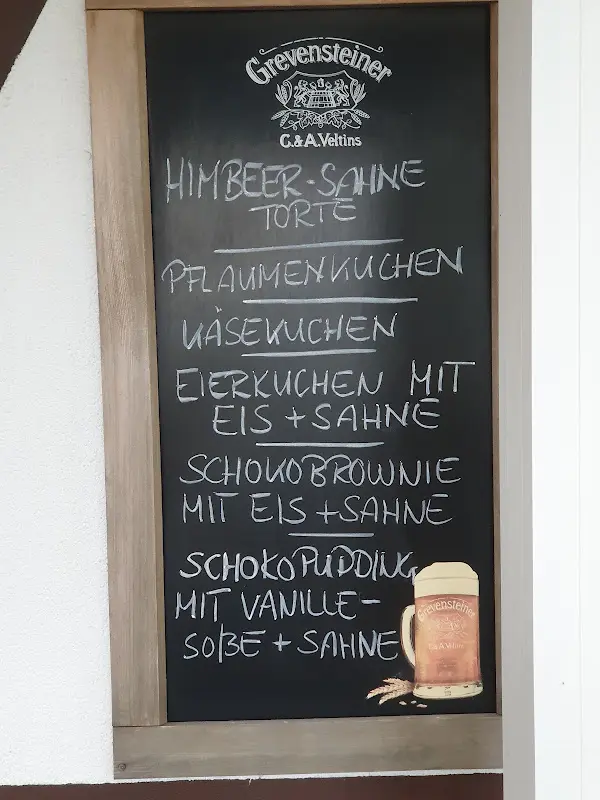 Grevensteiner
C.&A. Veltins
HIMBEER-SAHNE
TORTE
PFLAUMENKUCHEN
KÄSEKUCHEN
EIERKUCHEN MIT
EIS + SAHNE
SCHOKOBROWNIE
MIT EIS + SAHNE
SCHOKOPUDDING
MIT VANILLE-
SOßE + SAHNE
Grevensteiner
C.&A. Veltins